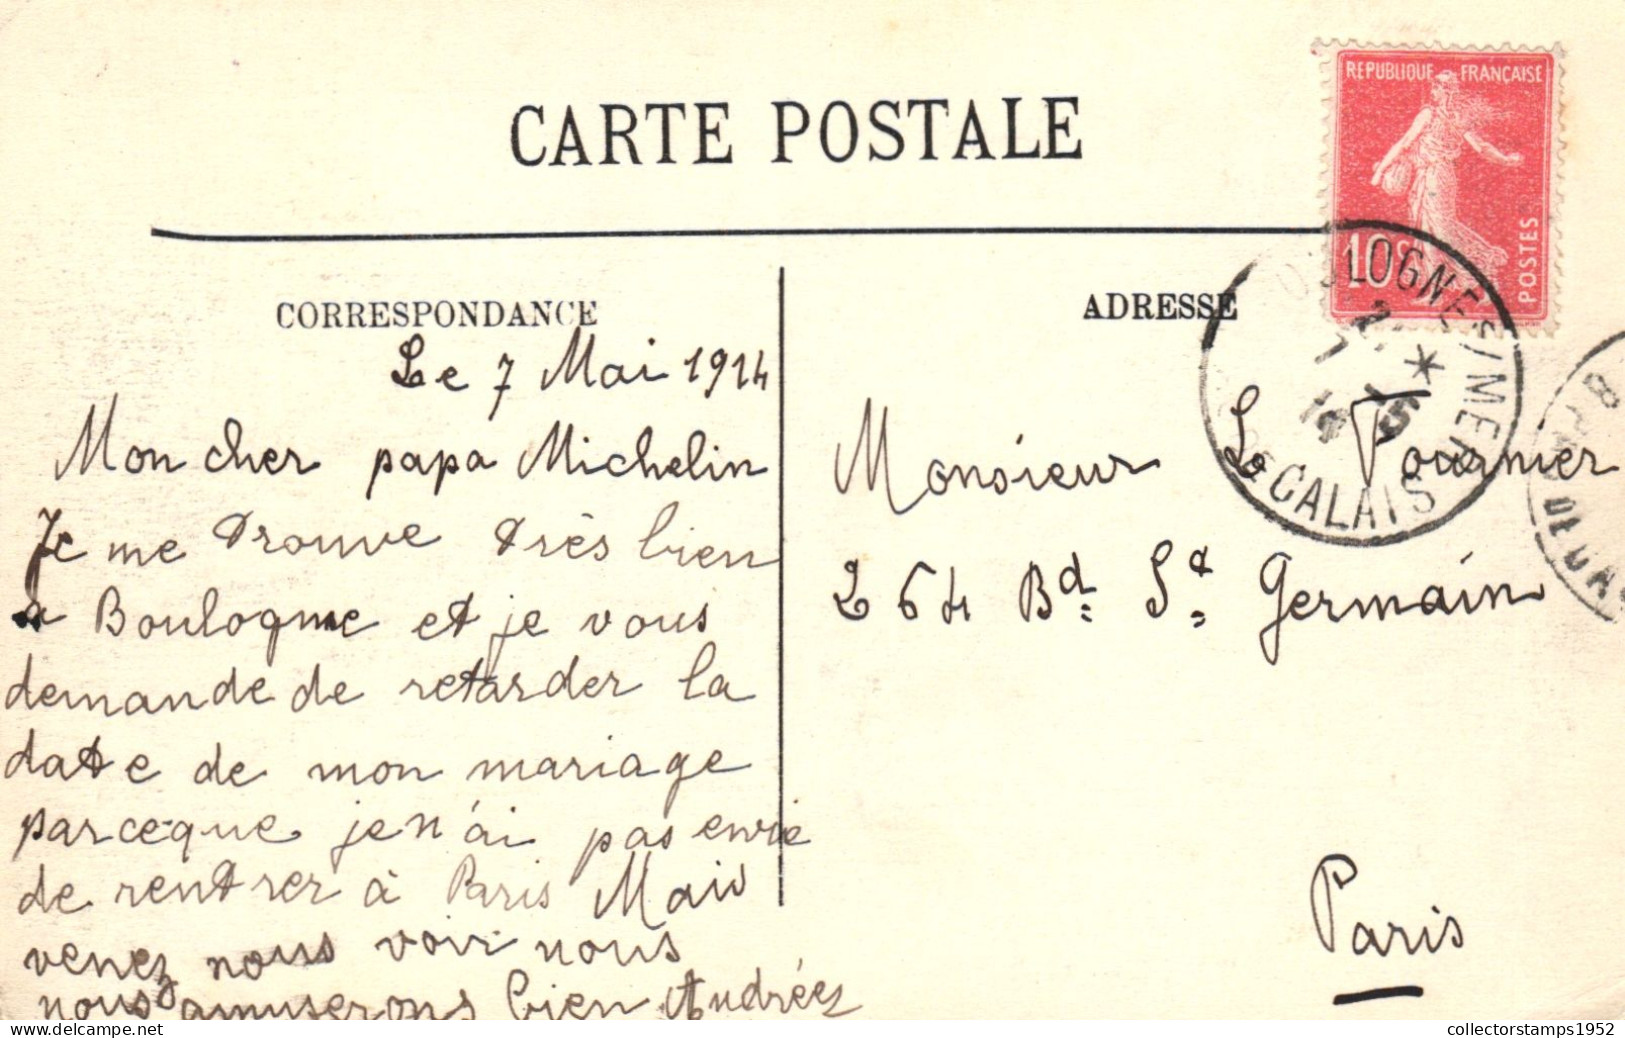 CARTE POSTALE
RÉPUBLIQUE FRANÇAISE
10c
POSTES
CORRESPONDANCE
ADRESSE
OULOGNE S/MER
CALAIS
Le 7 Mai 1914
Mon cher papa Michelin
Je me trouve très bien
a Boulogne et je vous
demande de retarder la
date de mon mariage
parceque je n'ai pas envie
de rentrer à Paris Mais
venez nous voir nous
nous amuserons bien Andrée
Monsieur Le Fournier
264 Bd St Germain
Paris
collectorstamps1952